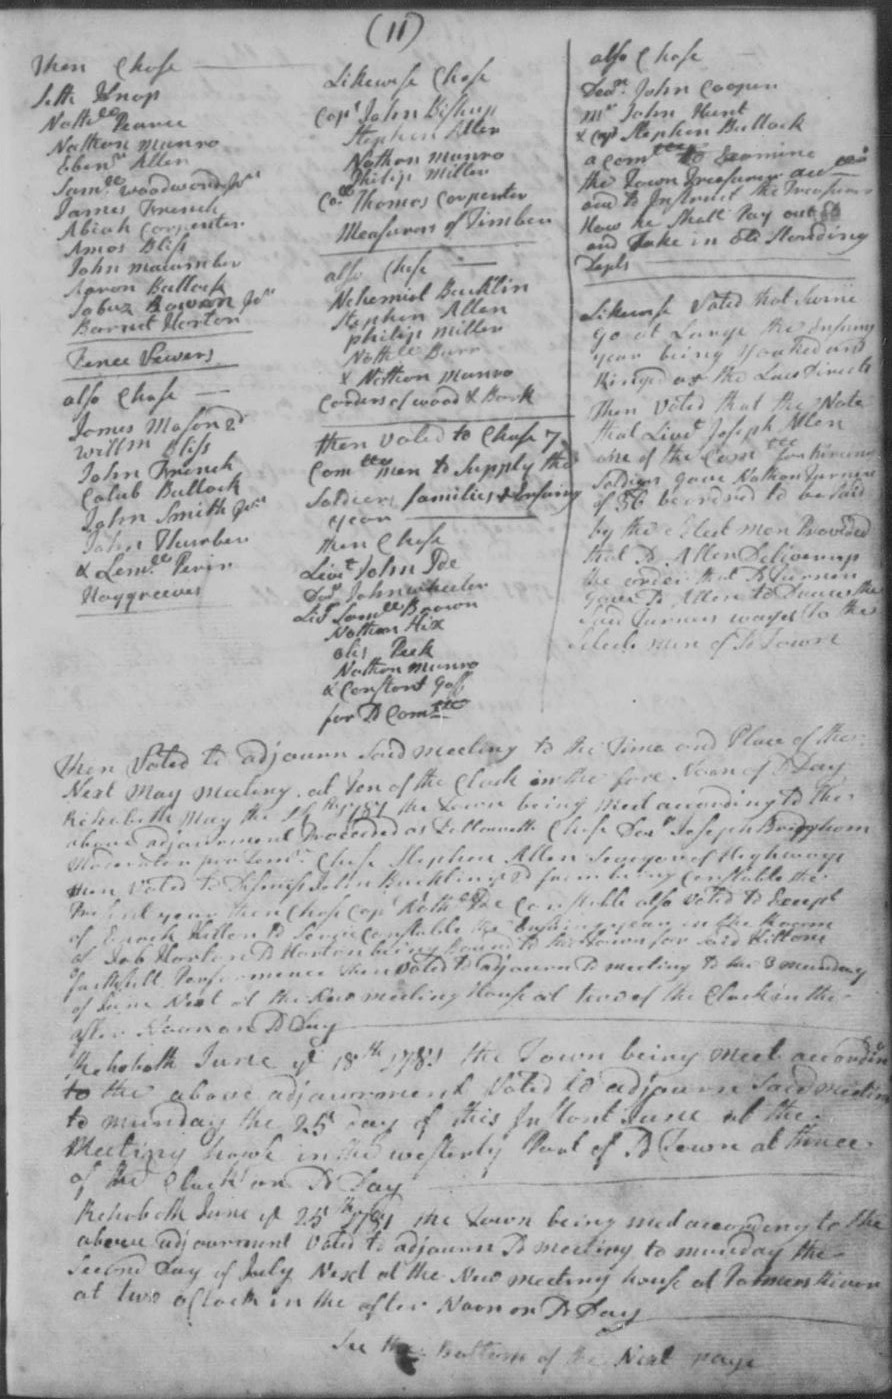 (11)
Then Chose
Seth Knap
Nath^ll Pearce
Nathan munro
Eben^r Allen
Sam^ll Woodward Ju^n
James French
Abiah Carpenter
Amos Bliss
John macumber
Aaron Bullock
Jabez Bowen Ju^n
Barnet Horton
Fence Vewers
also Chose
James Mason 2^d
Will^m Bliss
John French
Calub Bullock
John Smith Ju^n
John Thurber
& Lem^ll Perin
Haygreeves
Likewese Chose
Cap^t John Bishup
Stephen Allen
Nathan munro
Philip Miller
Co^ll Thomas Carpenter
Measurers of Timber
also Chose
Nehemiah Bucklin
Stephen Allen
philip miller
Nath^ll Burr
& Nathan munro
Corders of wood & Bark
then voted to Chuse 7
Com^tte men to Supply the
Soldiers families Insuing
year
then Chose
Livi^t John Ide
Dea^n John wheeler
Li^t Sam^ll Brown
Nathan Hix
Peck
Nathan munro
& Constant Goff
for D Com^tte
also Chose
Dea^n John Cooper
M^r John Hunt
& Cap^t Stephen Bullock
a Com^tte to Exomine
the Town Treasurer acc
and to Instruct the Treasurer
How he Shall Pay out
and Take in old Standing
Depts
Likewese Voted that Swine
go at Large the Insuing
year being Yoaked and
Ringed as the Law Directs
Then Voted that the Note
that Livi^t Joseph Allen
one of the Com^tte for Hireing
Soldiers gave Nathan Turner
of be ordred to be Paid
by the Select men Provided
that D Allen Deliver up
the order that D Turner
gave D Allen to the
said Turners wages to the
Select men of D Town
then Voted to adjourn Said meeting to the Time and Place of the
Next May meeting at Ten of the Clock in the fore Noon of D Day
Rehoboth May the 1781 the Town being meet according to the
above adjournment Proceded as Followeth Chose Dea^n Joseph Bridgham
Moderator pro Tem^r Chose Stephen Allen Sevayor of Highways
then Voted to Dismiss John Bucklin 2^d from being Constable the
Present year then Chose Cap^t Nath^ll Ide Constable also Voted to Except
of Enoch Hilton to Serve Constable the Ensuing year in the Room
of Job Horton D Horton being Bound to the Town for said Hiltons
faithfull Performence then voted to adjourn D meeting to the 3 munday
of June Next at the New meeting House at two of the Clock in the
after Noon on D Day
Rehoboth June y^e 18^th 1781 the Town being meet according
to the above adjournment Voted to adjourn Said meeting
to munday the 25 day of this Instant June at the
Meeting house in the westerly Part of D Town at three
of the Clock on D Day
Rehoboth June y^e 25^th 1781 the Town being meet according to the
above adjournment Voted to adjourn D meeting to munday the
Second Day of July Next at the New meeting house at Palmers River
at two a Clock in the after Noon on D Day
See the Bottom of the Next page